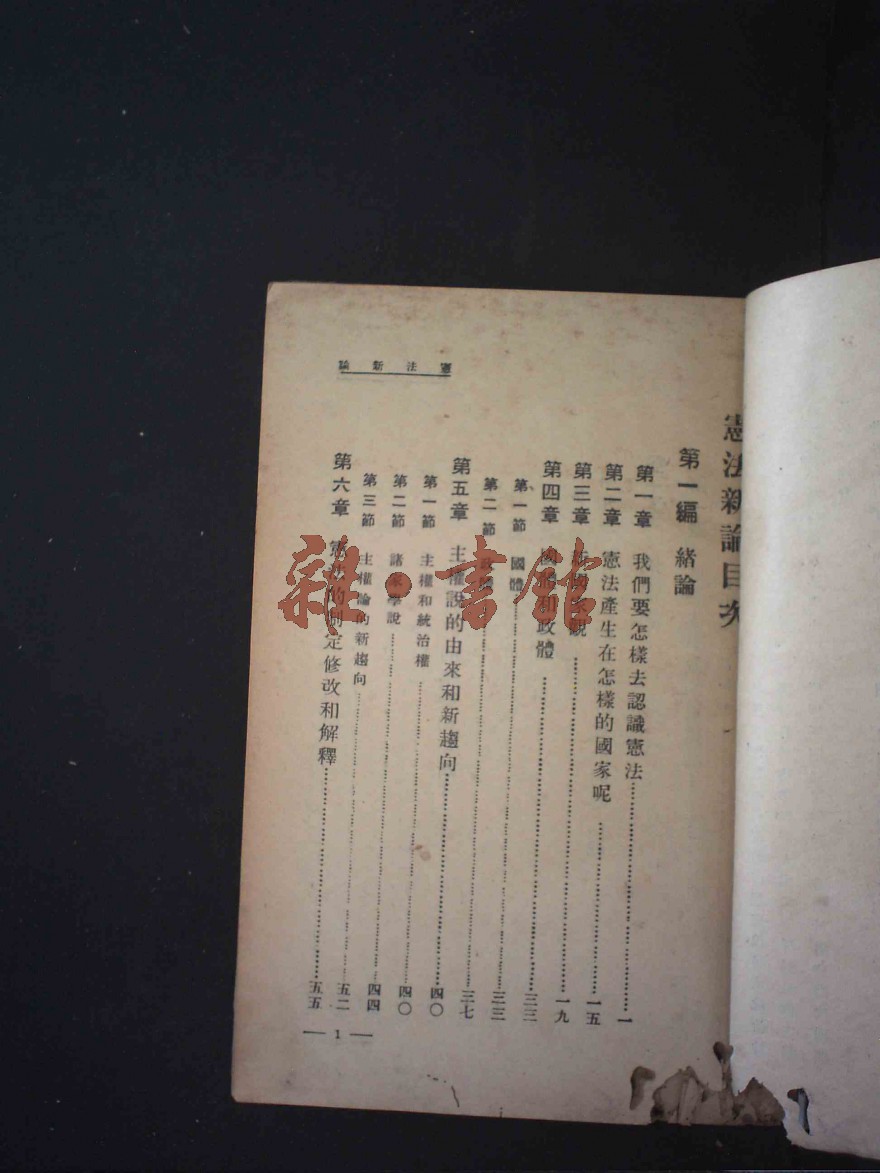 憲法新論目次
第一編 緒論
第一章 我們要怎樣去認識憲法……一
第二章 憲法產生在怎樣的國家呢……一五
第三章 新國家觀……一九
第四章 國體和政體……三三
第一節 國體……三三
第二節 政體……三七
第五章 主權說的由來和新趨向……四〇
第一節 主權和統治權……四〇
第二節 諸家學說……四四
第三節 主權論的新趨向……五二
第六章 憲法的制定修改和解釋……五五
憲法新論
— 1 —
雜·書館